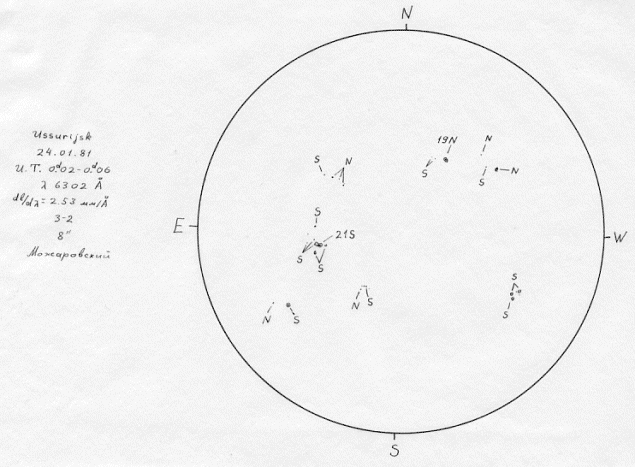 N
Ussurijsk
24.01.81
U.T. 0ᵈ02-0ᵈ06
λ 6302 Å
dl/dλ = 2.53 мм/Å
3-2
8"
Можаровский
19N
N
S
S
N
S
N
S
E
W
S
21S
S
S
N
S
N
S
S
S
S